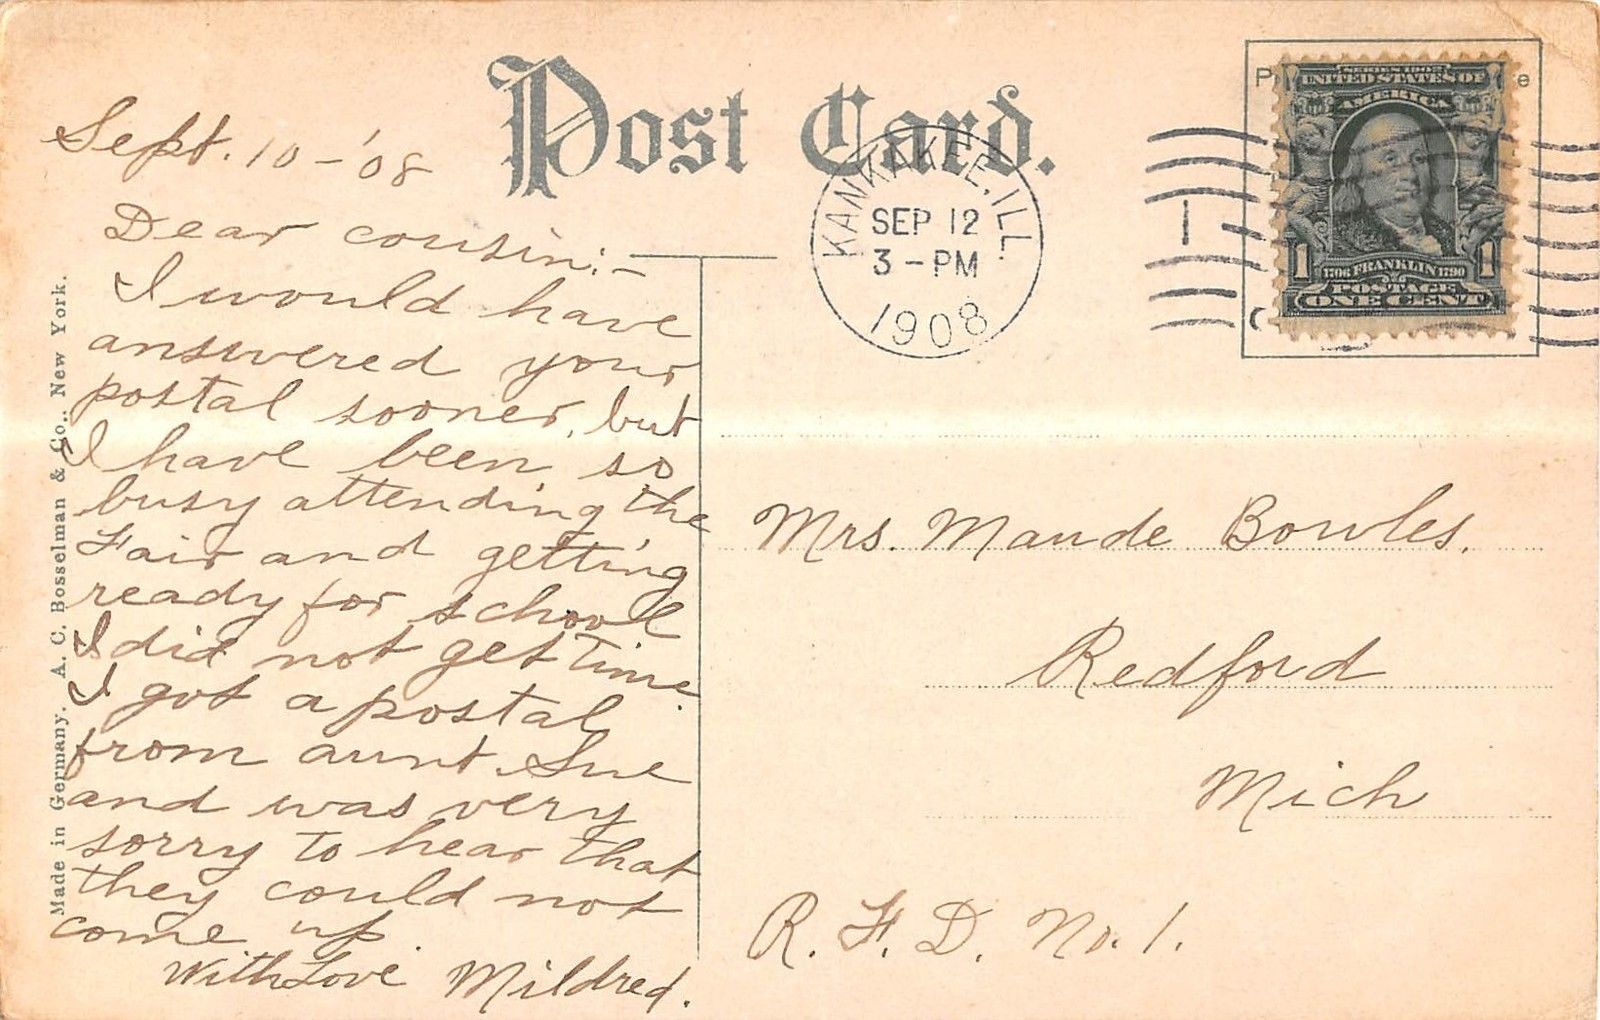 Post Card.
Sept. 10-'08
Dear cousin:-
I would have
answered your
postal sooner, but
I have been so
busy attending the
Fair and getting
ready for school
I did not get time.
I got a postal
from aunt Sue
and was very
sorry to hear that
they could not
come up.
With Love Mildred.
Made in Germany. A. C. Bosselman & Co., New York.
KANKAKEE, ILL.
SEP 12
3-PM
1908
1
SERIES 1902
UNITED STATES OF
AMERICA
1 1
1706 FRANKLIN 1790
POSTAGE
ONE CENT
Mrs. Maude Bowles.
Redford
Mich
R. F. D. No. 1.